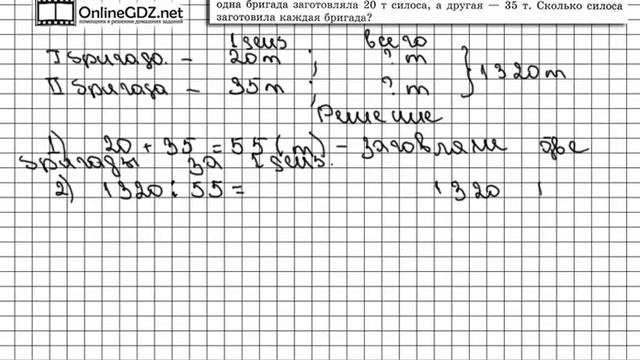 OnlineGDZ.net
помощник в решении домашних заданий
одна бригада заготовляла 20 т силоса, а другая — 35 т. Сколько силоса
заготовила каждая бригада?
1 день всего
I бригада. – 20 т ; ? т
II бригада – 35 т ; ? т } 1320 т
Решение
1) 20 + 35 = 55 (т) – заговляли две
бригады за 1 день.
2) 1320 : 55 = 1320